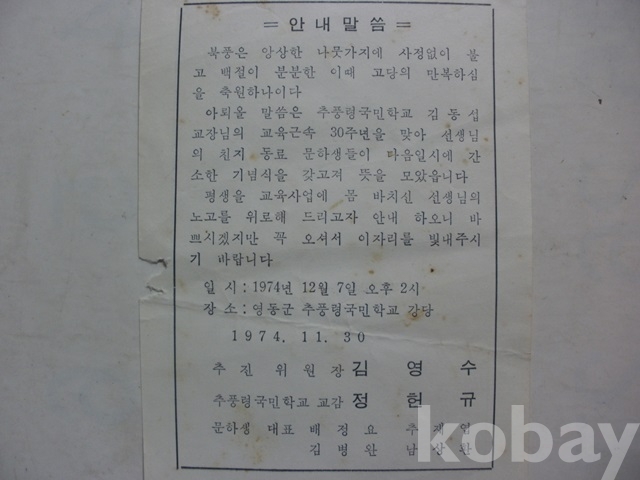 = 안내말씀 =
북풍은 앙상한 나뭇가지에 사정없이 불
고 백절이 분분한 이때 고당의 만복하심
을 축원하나이다
아뢰올 말씀은 추풍령국민학교 김동섭
교장님의 교육근속 30주년을 맞아 선생님
의 친지 동료 문하생들이 다음일시에 간
소한 기념식을 갖고져 뜻을 모았읍니다
평생을 교육사업에 몸 바치신 선생님의
노고를 위로해 드리고자 안내 하오니 바
쁘시겠지만 꼭 오셔서 이자리를 빛내주시
기 바랍니다
일 시 : 1974년 12월 7일 오후 2시
장 소 : 영동군 추풍령국민학교 강당
1974. 11. 30
추 진 위 원 장 김 영 수
추풍령국민학교 교감 정 헌 규
문하생 대표 배 정 요 추
김 병 완 남 상
kobay